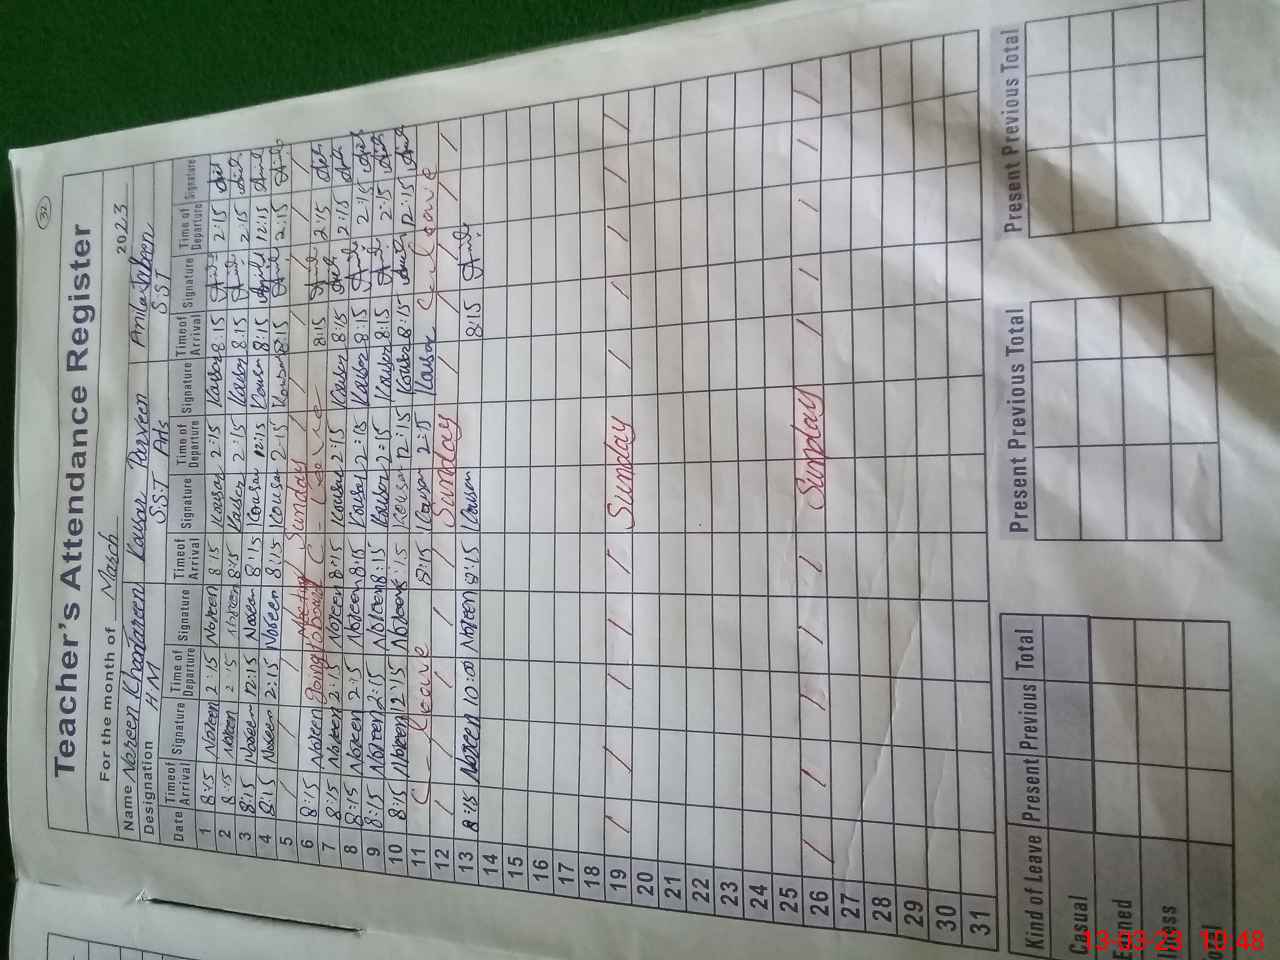 32
Teacher's Attendance Register
For the month of March 2023
Name Noreen Khantareen Kousar Parveen Anila Jabeen
Designation H.M S.S.T Arts S.S.T
Date Time of Arrival Signature Time of Departure Signature Time of Arrival Signature Time of Departure Signature Time of Arrival Signature Time of Departure Signature
1 8:15 Noreen 2:15 Noreen 8:15 Kousar 2:15 Kousar 8:15 2:15
2 8:15 Noreen 2:15 Noreen 8:15 Kousar 2:15 Kousar 8:15 2:15
3 8:15 Noreen 12:15 Noreen 8:15 Kousar 12:15 Kousar 8:15 12:15
4 8:15 Noreen 2:15 Noreen 8:15 Kousar 2:15 Kousar 8:15 2:15
5 / / Sunday / / /
6 8:15 Noreen Going to board Meeting C - Leave 8:15 2:15
7 8:15 Noreen 2:15 Noreen 8:15 Kousar 2:15 Kousar 8:15 2:15
8 8:15 Noreen 2:15 Noreen 8:15 Kousar 2:15 Kousar 8:15 2:15
9 8:15 Noreen 2:15 Noreen 8:15 Kousar 2:15 Kousar 8:15 2:15
10 8:15 Noreen 12:15 Noreen 8:15 Kousar 12:15 Kousar 8:15 12:15
11 C - Leave 8:15 Kousar 2:15 Kousar Leave
12 / / / / Sunday / / / /
13 8:15 Noreen 10:00 Noreen 8:15 Kousar 8:15
14
15
16
17
18
19 / / / / / Sunday / / / / /
20
21
22
23
24
25
26 / / / / / Sunday / / / /
27
28
29
30
31
Kind of Leave Present Previous Total Present Previous Total Present Previous Total
Casual
Illness
13-03-23 10:48